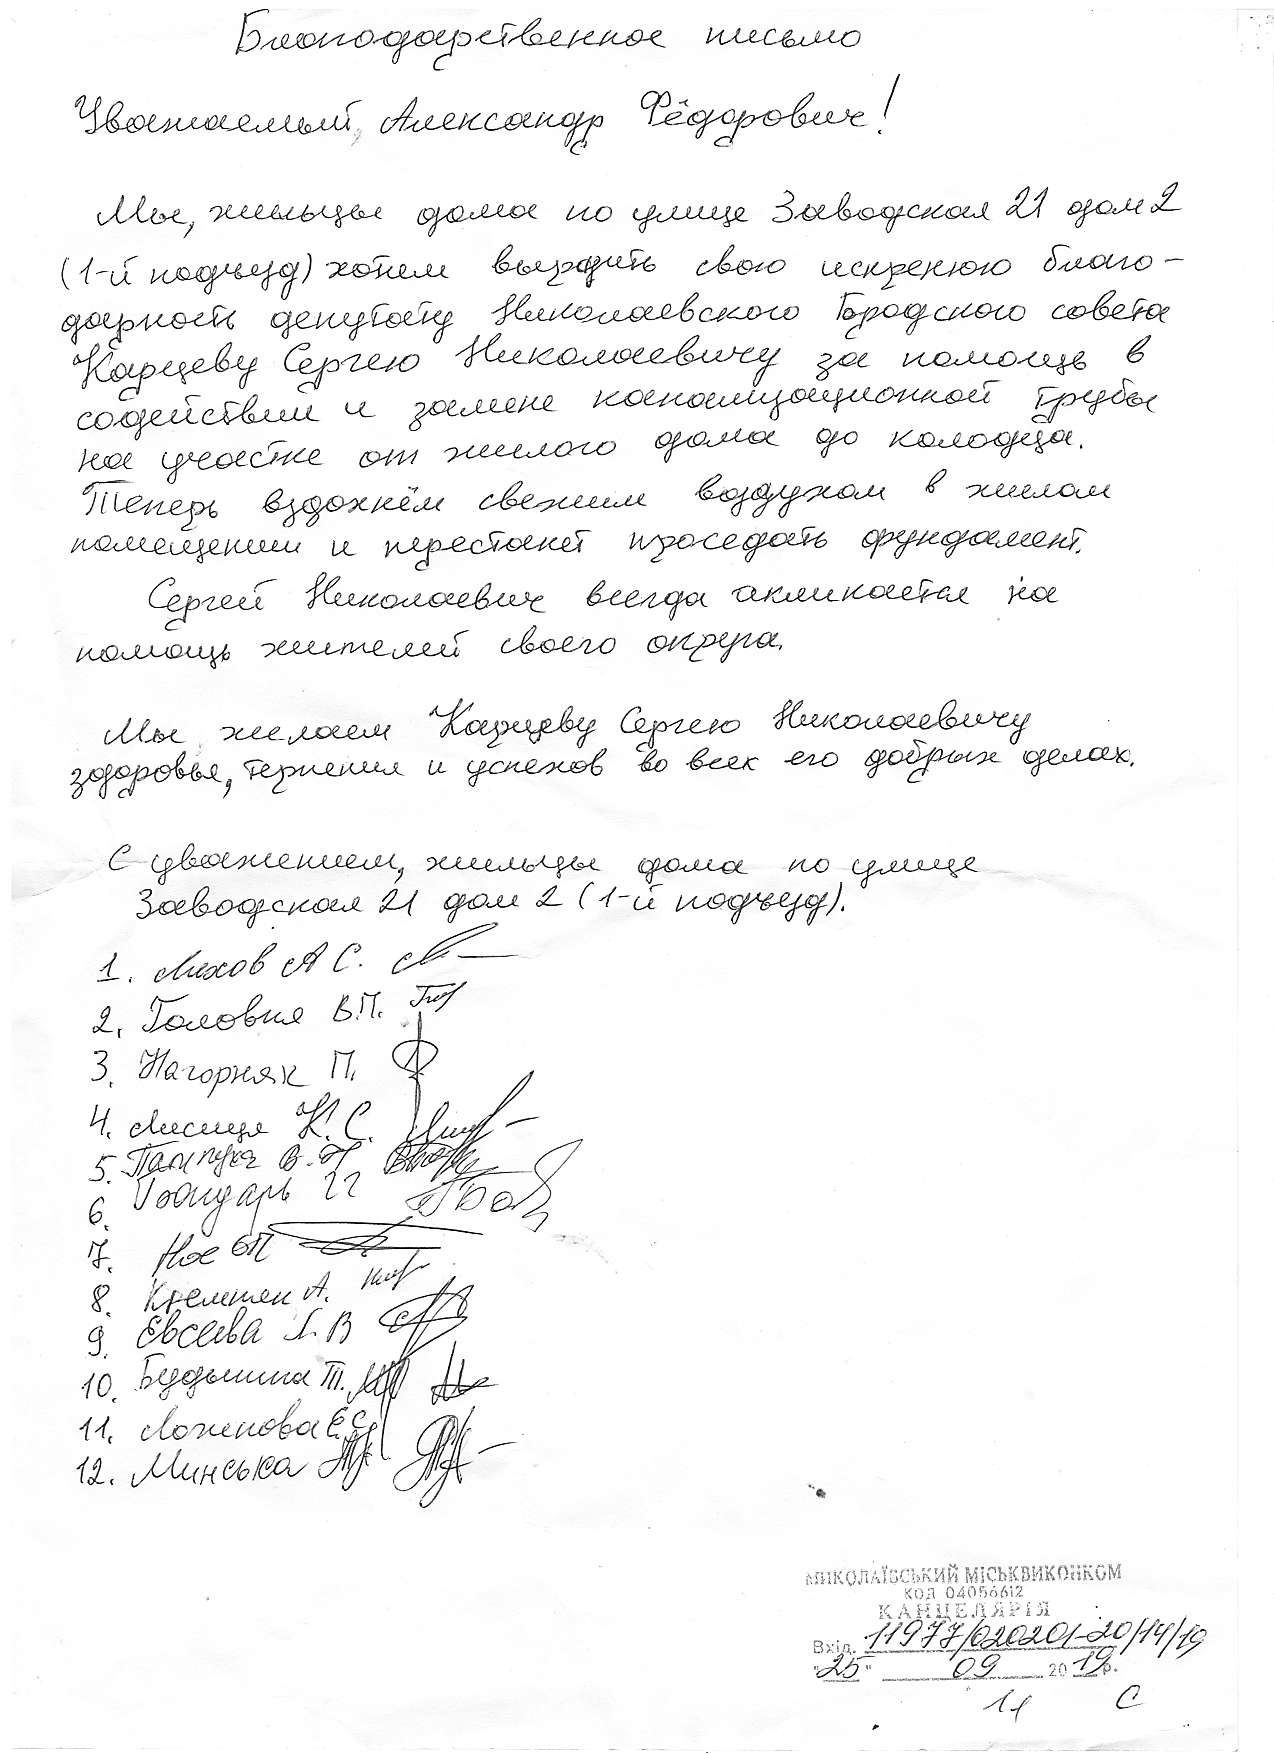 Благодарственное письмо
Уважаемый, Александр Фёдорович!
Мы, жильцы дома по улице Заводская 21 дом 2
(1-й подъезд) хотим выразить свою искренюю благо-
дарность депутату Николаевского Городского совета
Карцеву Сергею Николаевичу за помощь в
содействии и замене канализационной трубы
на участке от жилого дома до колодца.
Теперь вздохнём свежим воздухом в жилом
помещении и перестанет проседать фундамент.
Сергей Николаевич всегда акликается на
помощь жителей своего округа.
Мы желаем Карцеву Сергею Николаевичу
здоровья, терпения и успехов во всех его добрых делах.
С уважением, жильцы дома по улице
Заводская 21 дом 2 (1-й подъезд).
1. Ляхов А С.
2. Головня В.П.
3. Нагорняк П.
4. Лисиця К. С.
5.
6.
7.
8. А.
9. Евсеева Л. В
10. Т.
11. Е.С.
12. Минська
МИКОЛАЇВСЬКИЙ МІСЬКВИКОНКОМ
КОД 04056612
КАНЦЕЛЯРІЯ
Вхід. 11977/020201-20/14/19
"25" 09 2019 р.
С